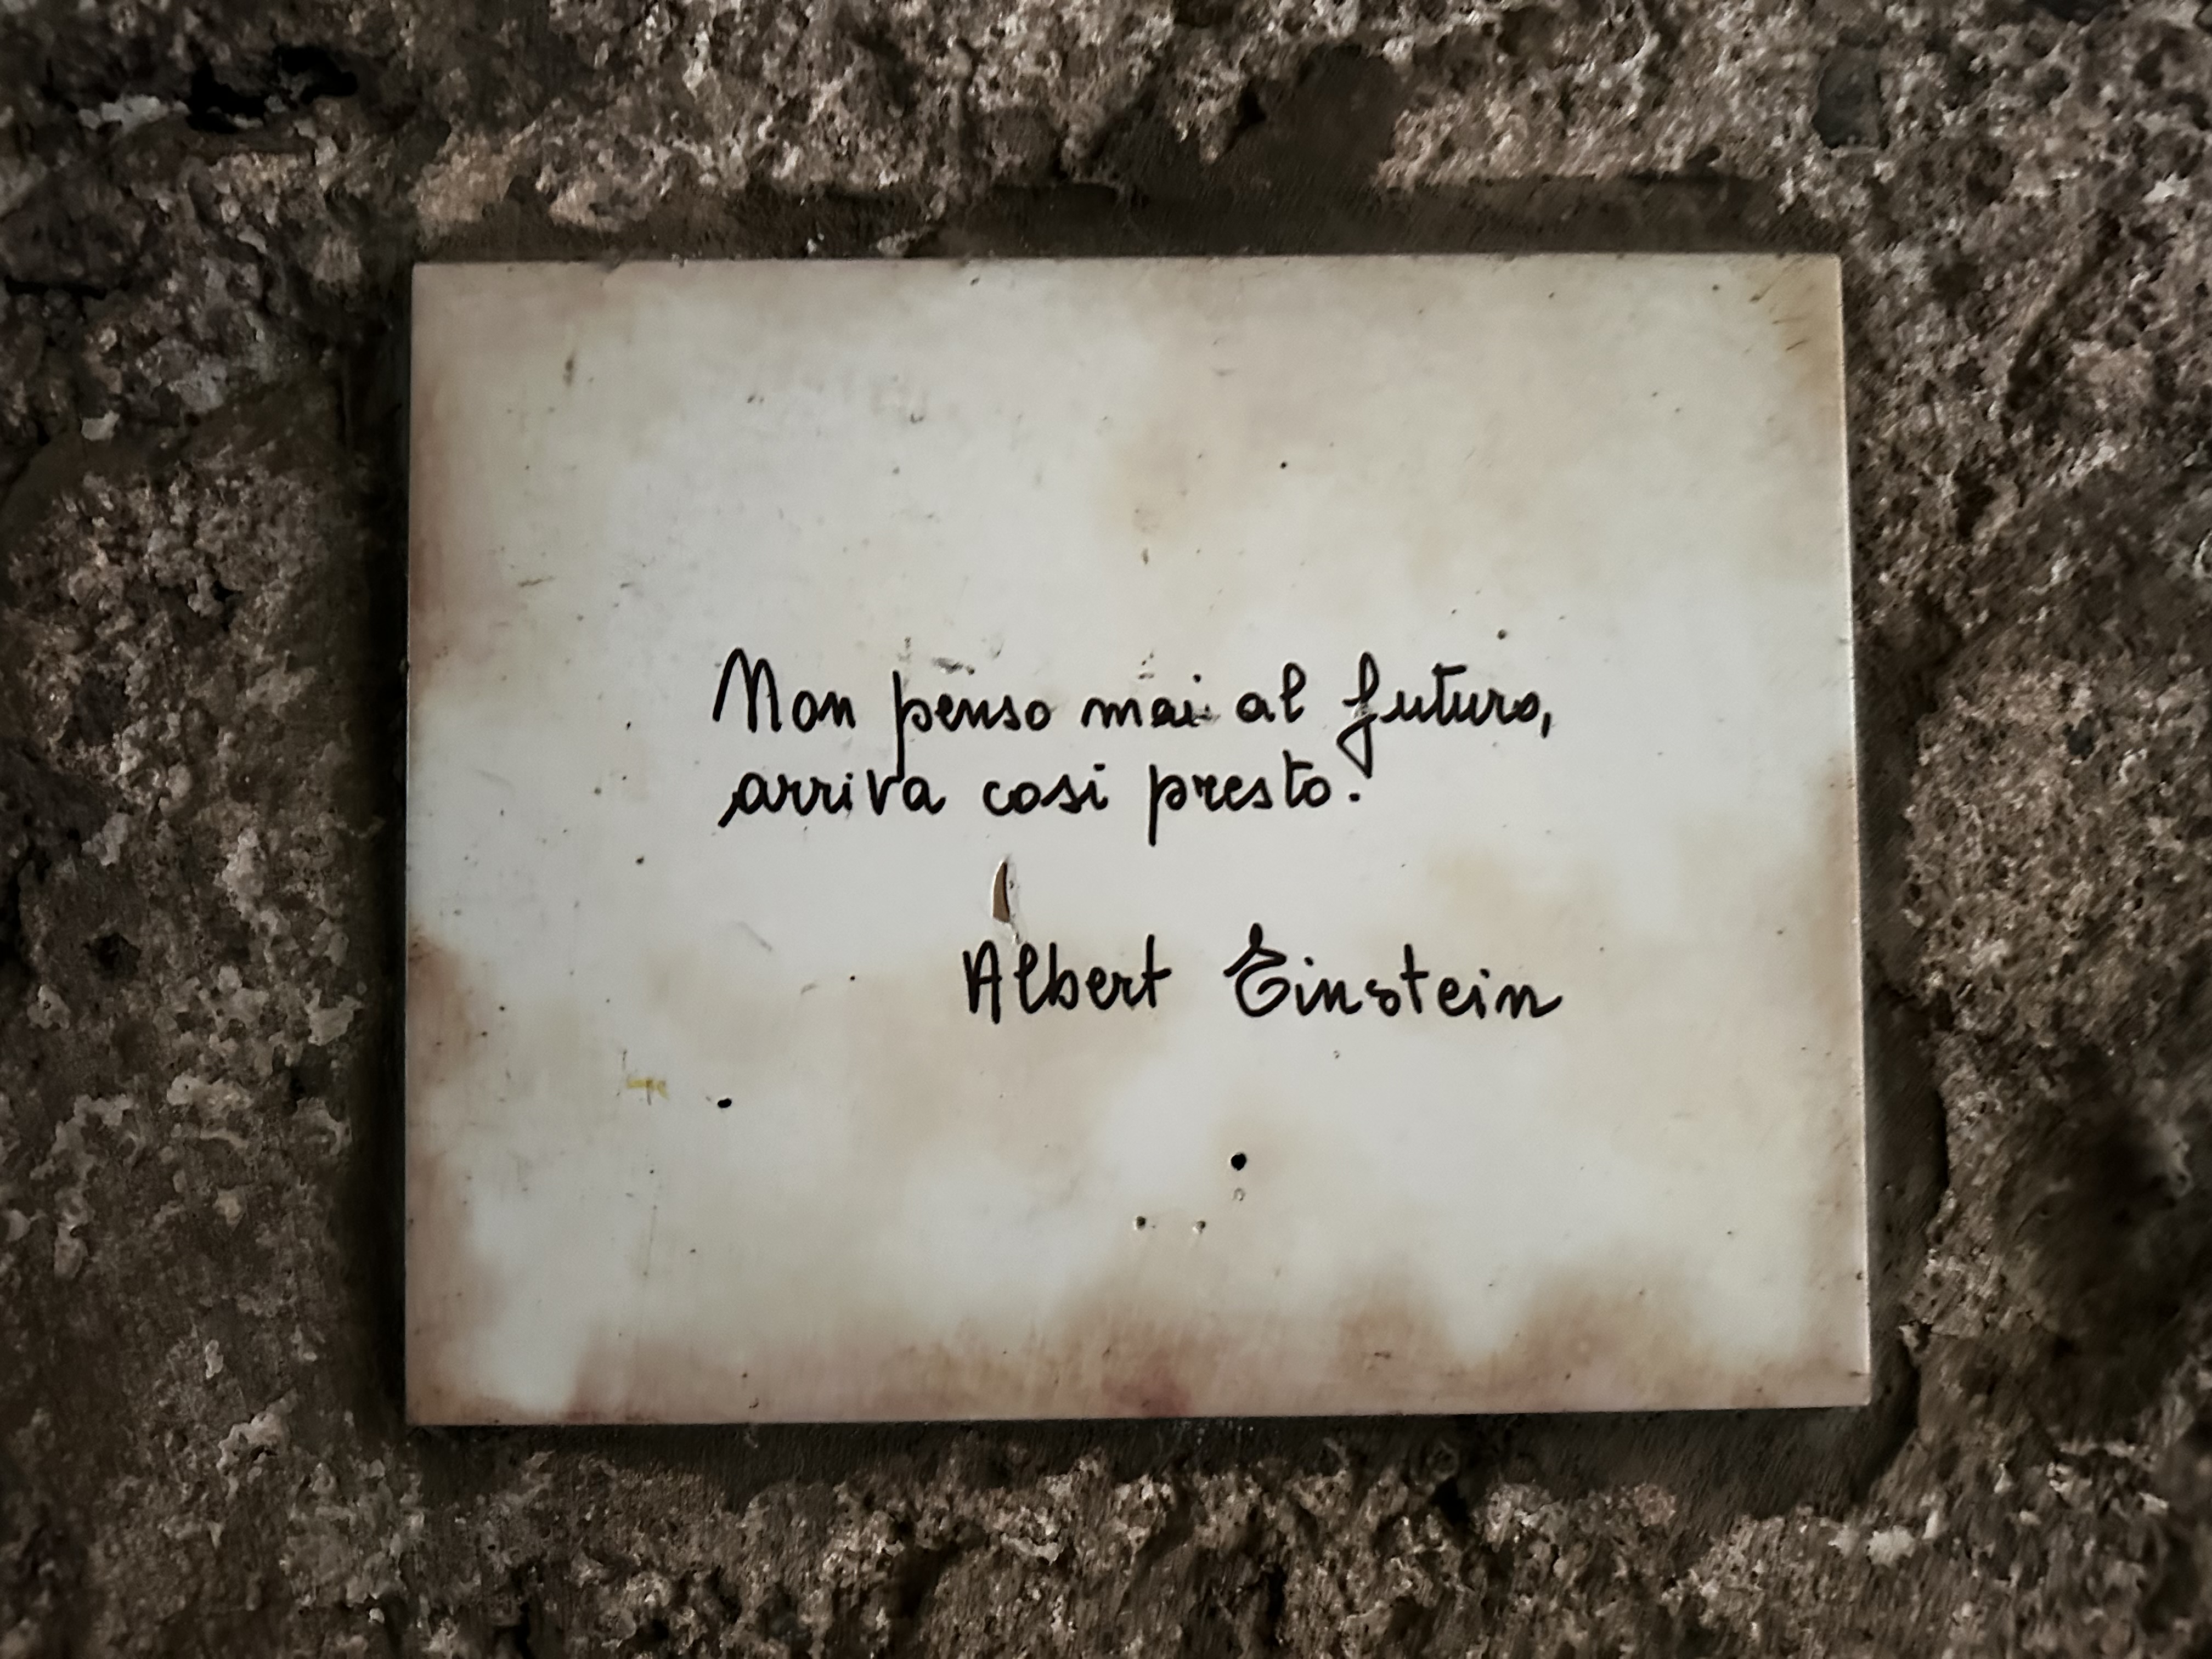 Non penso mai al futuro,
arriva così presto.
Albert Einstein